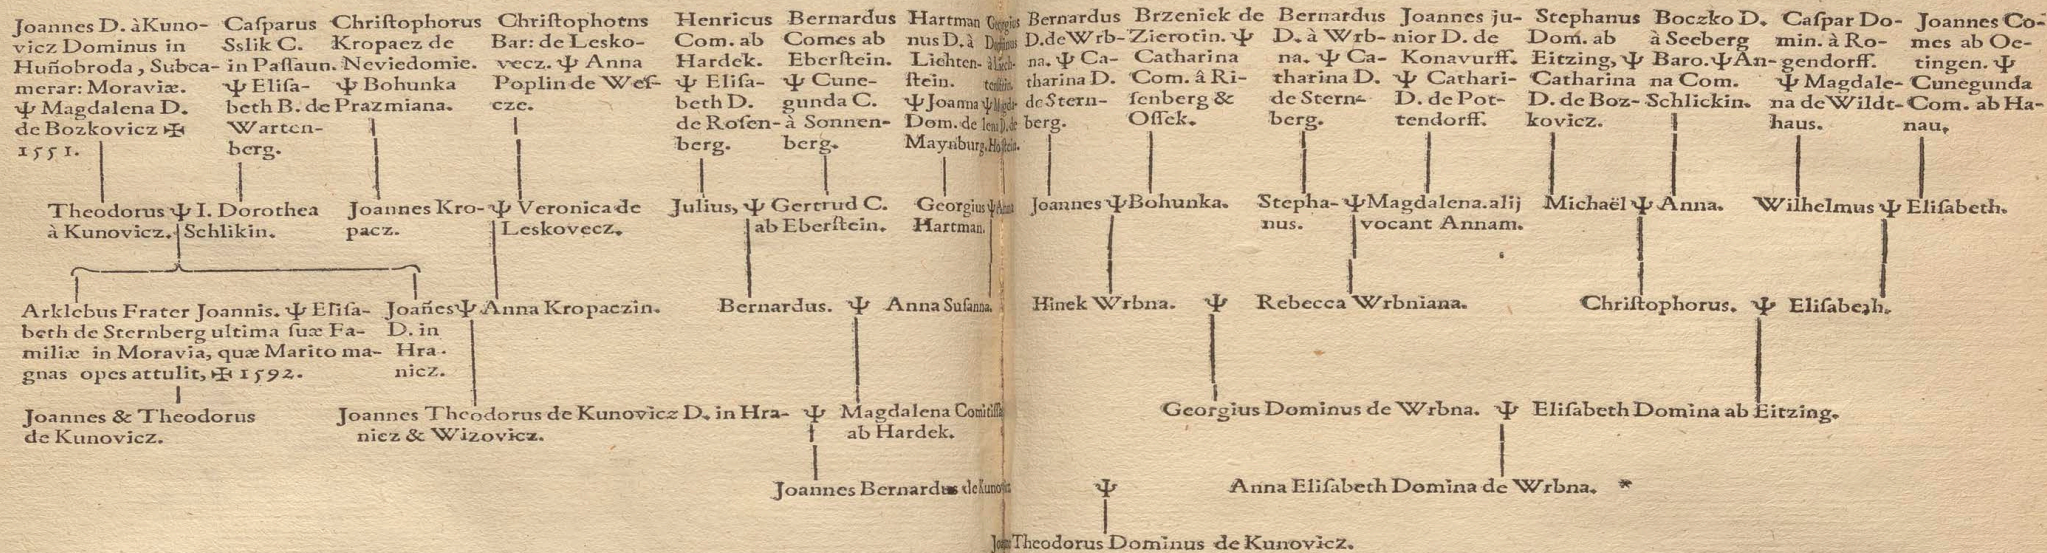 Joannes D. à Kuno-
vicz Dominus in
Huñobroda, Subca-
merar: Moraviæ.
Ψ Magdalena D.
de Bozkovicz ✠
1551.
Caſparus
Sslik C.
in Paſſaun.
Ψ Eliſa-
beth B. de
Warten-
berg.
Chriſtophorus
Kropacz de
Neviedomie.
Ψ Bohunka
Prazmiana.
Chriſtophorns
Bar: de Lesko-
vecz. Ψ Anna
Poplin de Weſ-
cze.
Henricus
Com. ab
Hardek.
Ψ Eliſa-
beth D.
de Roſen-
berg.
Bernardus
Comes ab
Eberſtein.
Ψ Cune-
gunda C.
à Sonnen-
berg.
Hartman
nus D. à
Liechten-
ſtein.
Ψ Joanna
Dom. de
Maynburg.
Georgius
Dominus
à Liech-
tenſtein.
Ψ Magda-
lena D. de
Hoſtein.
Bernardus
D. de Wrb-
na. Ψ Ca-
tharina D.
de Stern-
berg.
Brzeniek de
Zierotin. Ψ
Catharina
Com. â Ri-
ſenberg &
Oſſek.
Bernardus
D. à Wrb-
na. Ψ Ca-
tharina D.
de Stern-
berg.
Joannes ju-
nior D. de
Konavurff.
Ψ Cathari-
D. de Pot-
tendorff.
Stephanus
Dom. ab
Eitzing, Ψ
Catharina
D. de Boz-
kovicz.
Boczko D.
à Seeberg
Baro. Ψ An-
na Com.
Schlickin.
Caſpar Do-
min. à Ro-
gendorff.
Ψ Magdale-
na de Wildt-
haus.
Joannes Co-
mes ab Oe-
tingen. Ψ
Cunegunda
Com. ab Ha-
nau,
Theodorus Ψ I. Dorothea
à Kunovicz. Schlikin.
Joannes Kro- Ψ Veronica de
pacz. Leskovecz.
Julius, Ψ Gertrud C.
ab Eberſtein.
Georgius Ψ Anna
Hartman.
Joannes Ψ Bohunka.
Stepha- Ψ Magdalena. alij
nus. vocant Annam.
Michaël Ψ Anna.
Wilhelmus Ψ Eliſabeth.
Arklebus Frater Joannis. Ψ Eliſa-
beth de Sternberg ultima ſuæ Fa-
miliæ in Moravia, quæ Marito ma-
gnas opes attulit, ✠ 1592.
Joañes Ψ Anna Kropaczin.
D. in
Hra-
nicz.
Bernardus. Ψ Anna Suſanna.
Hinek Wrbna. Ψ Rebecca Wrbniana.
Chriſtophorus. Ψ Eliſabeah.
Joannes & Theodorus
de Kunovicz.
Joannes Theodorus de Kunovicz D. in Hra- Ψ Magdalena Comitiſſa
nicz & Wizovicz. ab Hardek.
Georgius Dominus de Wrbna. Ψ Eliſabeth Domina ab Eitzing.
Joannes Bernardus de Kunovicz Ψ Anna Eliſabeth Domina de Wrbna. *
Theodorus Dominus de Kunovicz.